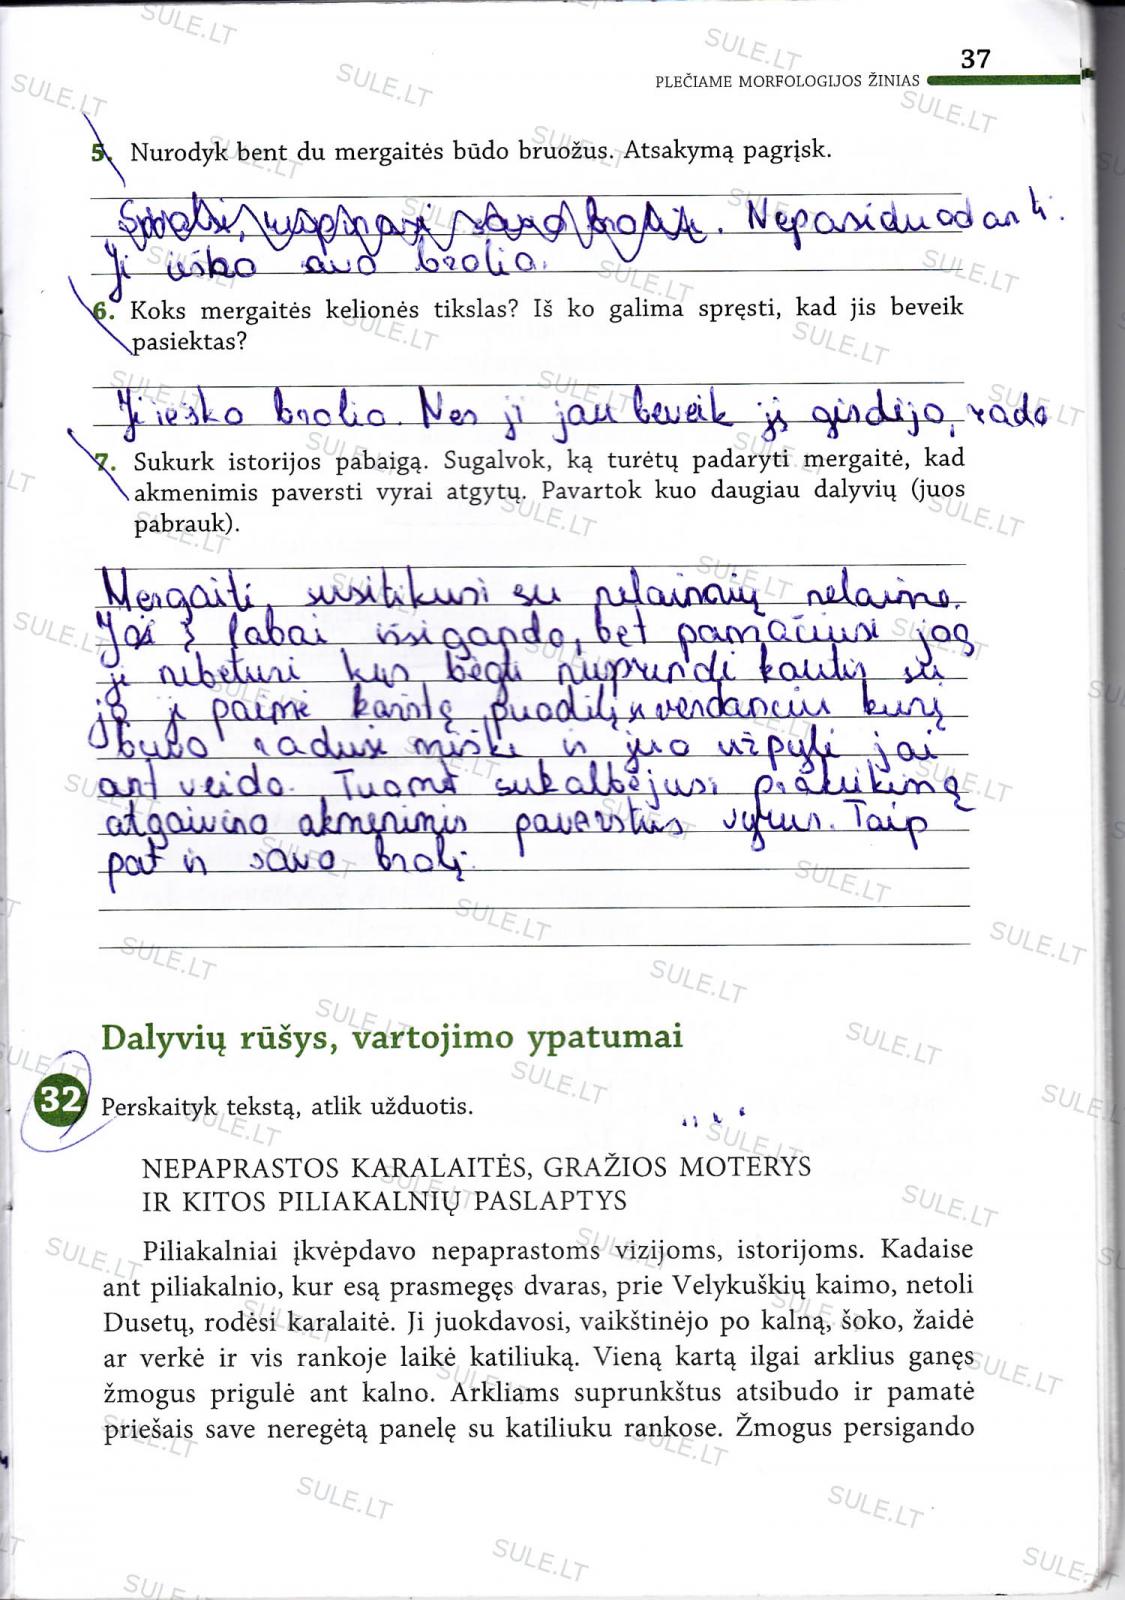 37
PLEČIAME MORFOLOGIJOS ŽINIAS
5. Nurodyk bent du mergaitės būdo bruožus. Atsakymą pagrįsk.
Nepasiduodanti.
Ji ieško savo brolio.
6. Koks mergaitės kelionės tikslas? Iš ko galima spręsti, kad jis beveik
pasiektas?
Ji ieško brolio. Nes ji jau beveik jį girdėjo, rado
7. Sukurk istorijos pabaigą. Sugalvok, ką turėtų padaryti mergaitė, kad
akmenimis paversti vyrai atgytų. Pavartok kuo daugiau dalyvių (juos
pabrauk).
Mergaitė, susitikusi su nelaime.
labai išsigando, bet pamačiusi jog
ji nebeturi kur bėgti nusprendė kautis su
ja ji paėmė karštą puodelį verdančiu kurį
buvo radusi miške ir juo užpylė jai
ant veido. Tuomet sukalbėjusi
atgaivino akmenimis paverstus vyrus. Taip
pat ir savo brolį.
Dalyvių rūšys, vartojimo ypatumai
32 Perskaityk tekstą, atlik užduotis.
NEPAPRASTOS KARALAITĖS, GRAŽIOS MOTERYS
IR KITOS PILIAKALNIŲ PASLAPTYS
Piliakalniai įkvėpdavo nepaprastoms vizijoms, istorijoms. Kadaise
ant piliakalnio, kur esą prasmegęs dvaras, prie Velykuškių kaimo, netoli
Dusetų, rodėsi karalaitė. Ji juokdavosi, vaikštinėjo po kalną, šoko, žaidė
ar verkė ir vis rankoje laikė katiliuką. Vieną kartą ilgai arklius ganęs
žmogus prigulė ant kalno. Arkliams suprunkštus atsibudo ir pamatė
priešais save neregėtą panelę su katiliuku rankose. Žmogus persigando